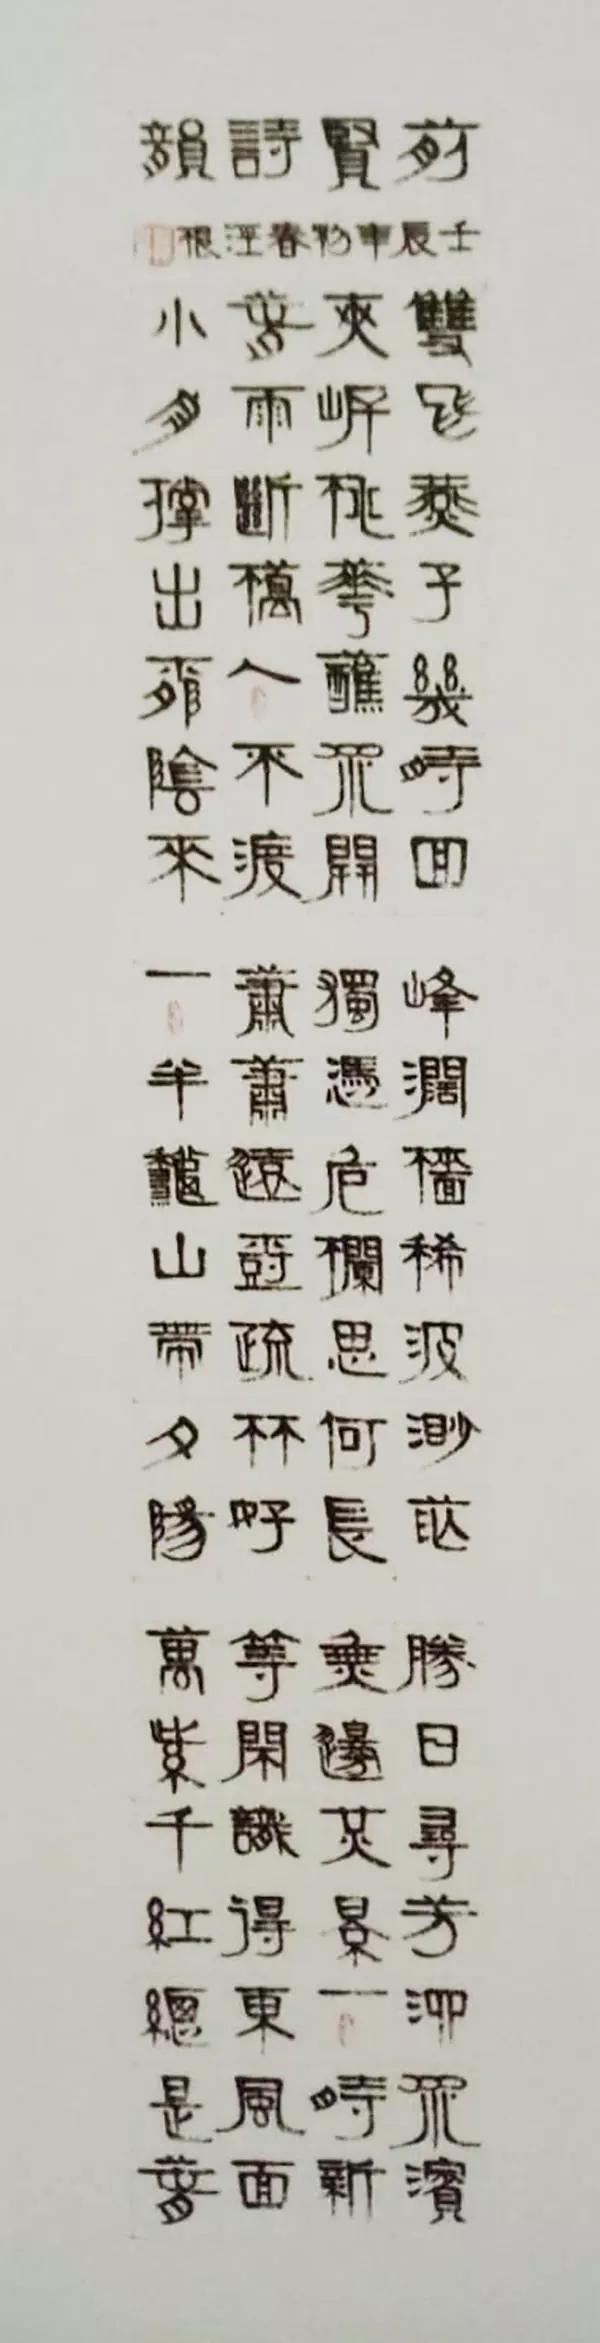 前賢詩韻
壬辰春
雙飛燕子幾時回
夾岸桃花蘸水開
春雨斷橋人不渡
小舟撐出柳陰來
峰闊檣稀波渺茫
獨憑危欄思何長
蕭蕭遠樹疏林外
一半龝山帶夕陽
勝日尋芳泗水濱
無邊光景一時新
等閑識得東風面
萬紫千紅總是春